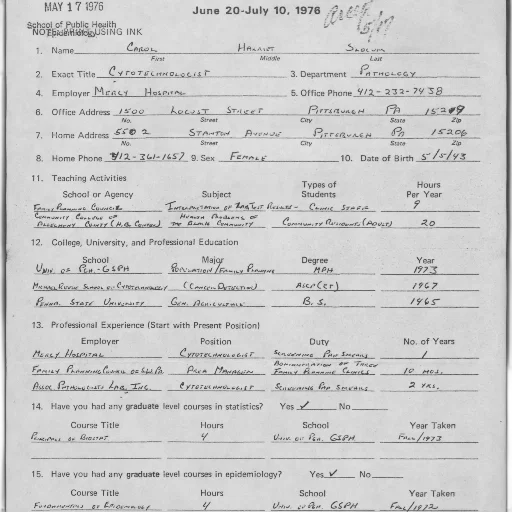 MAY 17 1976
June 20-July 10, 1976
School of Public Health
Epidemiology
NOTE: PRINT USING INK
1. Name CAROL HARRIET SLOCUM
First Middle Last
2. Exact Title CYTOTECHNOLOGIST 3. Department PATHOLOGY
4. Employer MERCY HOSPITAL 5. Office Phone 412-232-7458
6. Office Address 1500 LOCUST STREET PITTSBURGH PA 15219
No. Street City State Zip
7. Home Address 5502 STANTON AVENUE PITTSBURGH PA 15206
No. Street City State Zip
8. Home Phone 412-361-1657 9. Sex FEMALE 10. Date of Birth 5/5/43
11. Teaching Activities
School or Agency Subject Types of Students Hours Per Year
FAMILY PLANNING COUNCIL INTERPRETATION OF LAB TEST RESULTS - CLINIC STAFF 9
COMMUNITY COLLEGE OF ALLEGHENY COUNTY (H.B. CENTER) HEALTH PROBLEMS OF THE BLACK COMMUNITY COMMUNITY RESIDENTS (ADULT) 20
12. College, University, and Professional Education
School Major Degree Year
UNIV. OF PGH. - GSPH POPULATION/FAMILY PLANNING MPH 1973
SCHOOL OF CYTOTECHNOLOGY (CANCER DETECTION) ASCP(CT) 1967
PENNA. STATE UNIVERSITY GEN. AGRICULTURE B.S. 1965
13. Professional Experience (Start with Present Position)
Employer Position Duty No. of Years
MERCY HOSPITAL CYTOTECHNOLOGIST SCREENING PAP SMEARS 1
FAMILY PLANNING COUNCIL OF S.W. PA. AREA MANAGER ADMINISTRATION OF THREE FAMILY PLANNING CLINICS 10 MOS.
ASSOC. PATHOLOGISTS LAB. INC. CYTOTECHNOLOGIST SCREENING PAP SMEARS 2 YRS.
14. Have you had any graduate level courses in statistics? Yes ✓ No
Course Title Hours School Year Taken
PRINCIPALS OF BIOSTAT 4 UNIV. OF PGH. GSPH FALL/1973
15. Have you had any graduate level courses in epidemiology? Yes ✓ No
Course Title Hours School Year Taken
FUNDAMENTALS OF EPIDEMIOLOGY 4 UNIV. OF PGH. GSPH FALL/1972